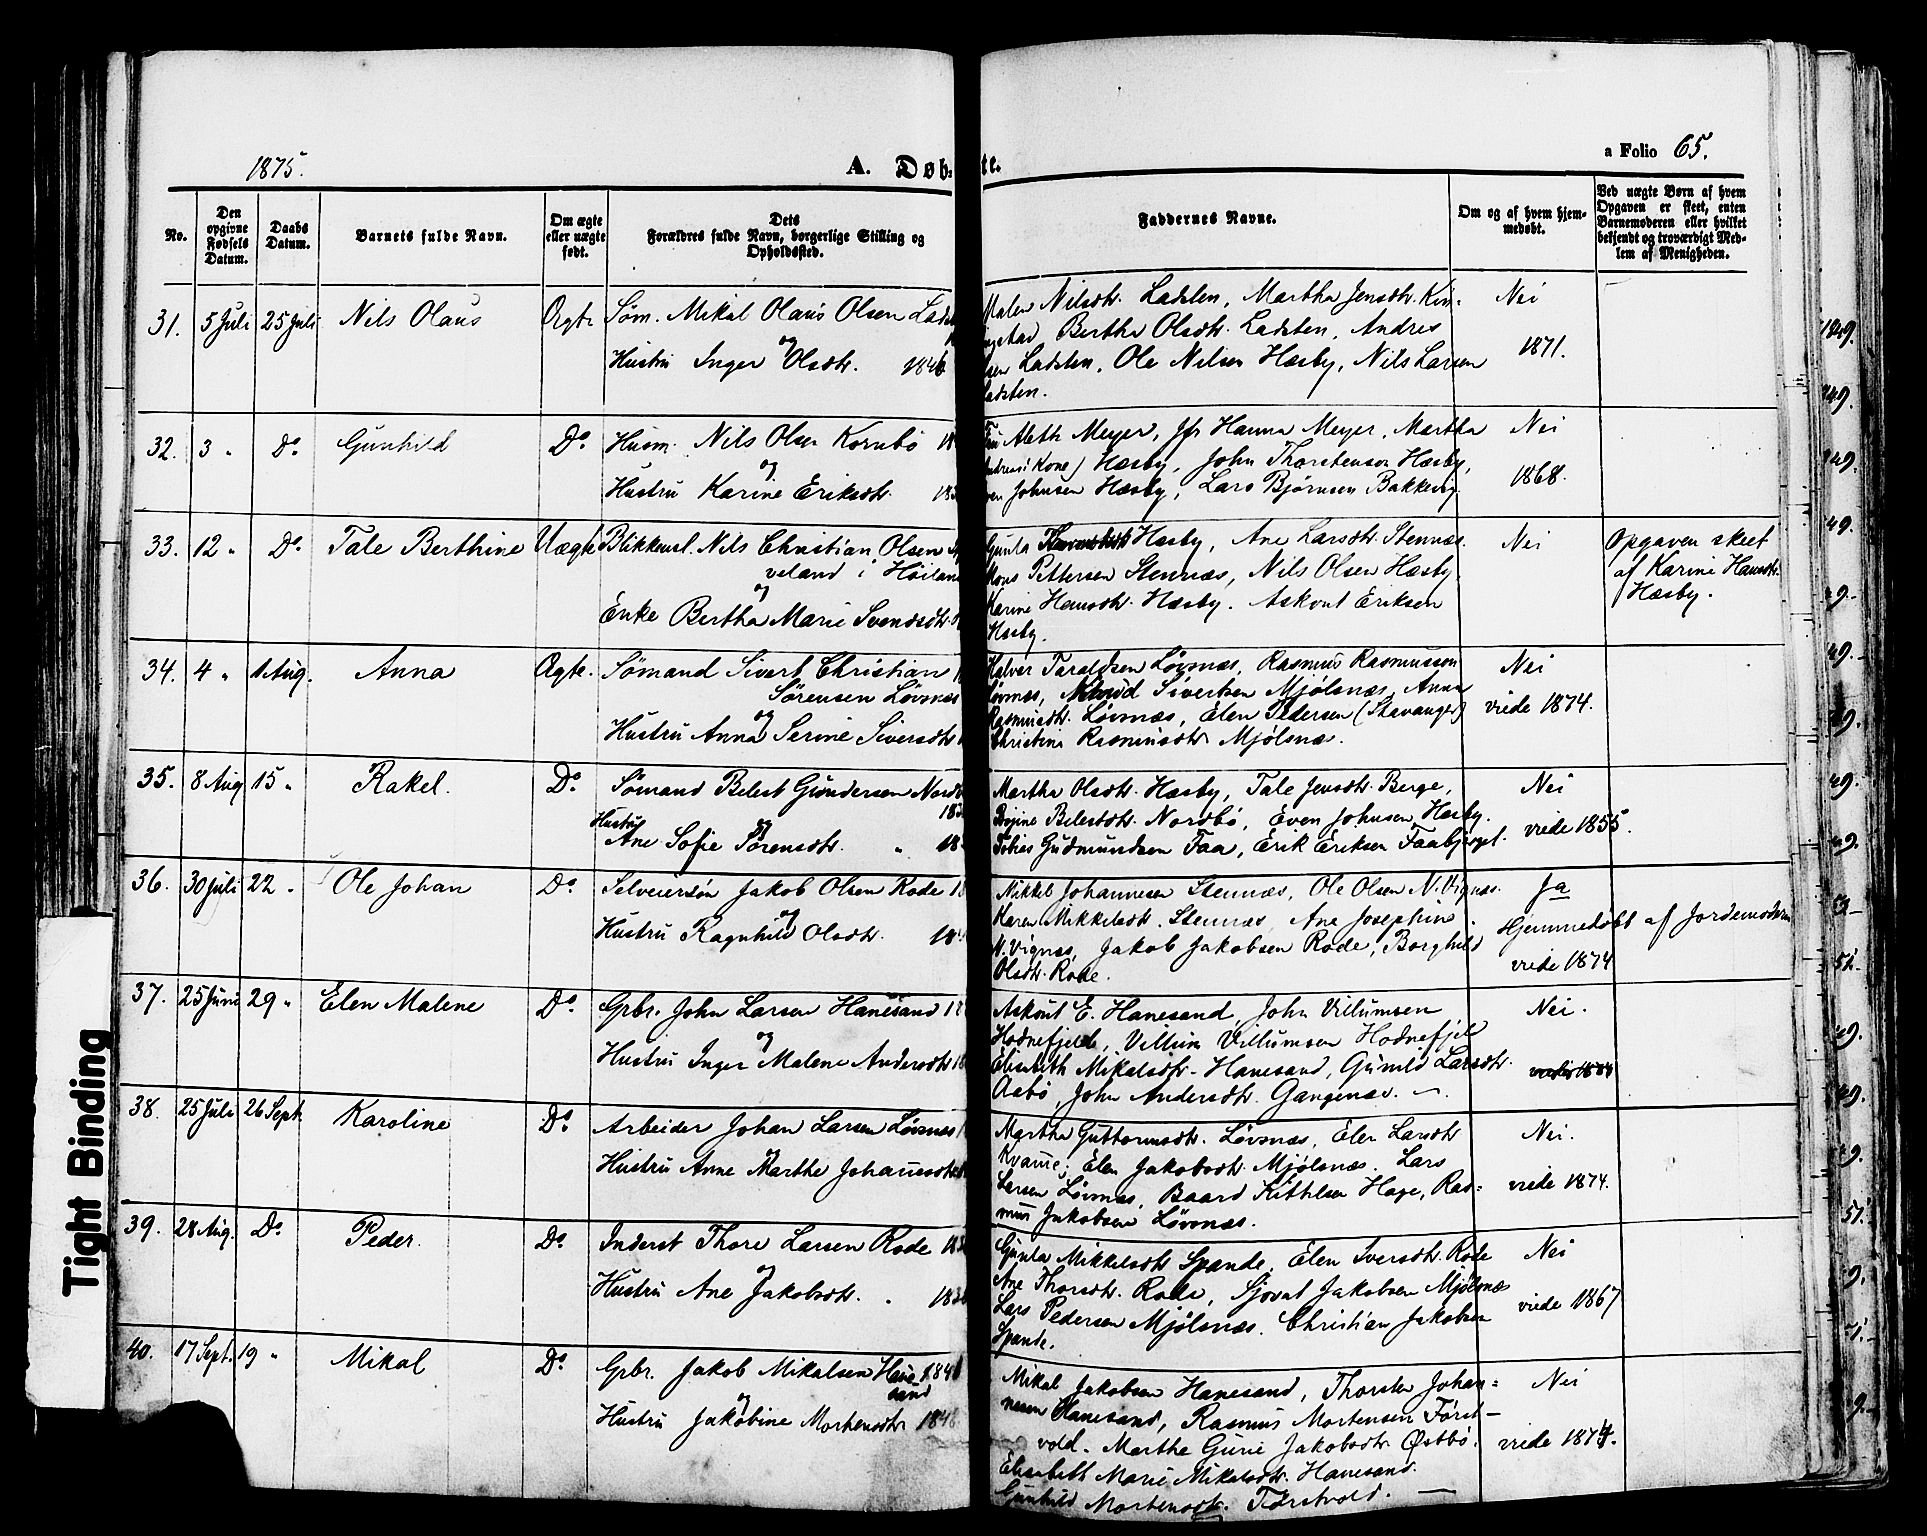 1875.
A. Døb-
te.
a Folio 65.
No.
Den opgivne Fødsels Datum.
Daabs Datum.
Barnets fulde Navn.
Om ægte eller uægte født.
Dets Forældres fulde Navn, borgerlige Stilling og Opholdssted.
Faddernes Navne.
Om og af hvem hjem-
medøbt.
Ved uægte Børn af hvem
Opgaven er skeet, enten
Barnemoderen eller hvilket
bekjendt og troværdigt Med-
lem af Menigheden.
31. 5 Juli 25 Juli Nils Olaus Ægte Søm. Mikal Olaus Olsen
og
Hustru Inger Olsdtr. 1846
Malen Nilsdtr. Ladsten, Martha Jensdtr.
Bertha Olsdtr. Ladsten, Andres
Ladsten, Ole Nilsen Hæsby, Nils Larsen
Ladsten.
Nei
1871.
32. 3 " Do. Gunhild Do. Husm. Nils Olsen Kornbø
og
Hustru Karine Eriksdtr.
Aleth Meyer, Jfr Hanna Meyer, Martha
Kone) Hæsby, John Thorstenson Hæsby,
Johnsen Hæsby, Lars Bjørnsen Bakkevig.
Nei
1868.
33. 12 " Do. Tale Berthine Uægte Blikkensl. Nils Christian Olsen
veland i Høiland
og
Enke Bertha Marie Svendsdtr.
Gunla Hæsby, Ane Larsdtr. Stennæs.
Mons Pettersen Stennæs, Nils Olsen Hæsby.
Karine Hansdtr. Hæsby. Askout Eriksen
Hæsby.
Nei
Opgaven skeet
af Karine Hansdtr.
Hæsby.
34. 4 " 1 Aug. Anna Ægte. Sømand Sivert Christian
Sörensen Løvsnæs
og
Hustru Anna Serine Siversdtr.
Halvor Taraldsen Løvsnæs, Rasmus Rasmusson
Løvsnæs, Sivertsen Mjølsnæs, Anna
Rasmusdtr. Løvsnæs, Elen Pedersen (Stavanger)
Christina Rasmusdtr Mjølsnæs.
Nei
viede 1874.
35. 8 Aug 15 " Rakel. Do. Sømand Belest Gundersen
og
Hustru
Ane Sofie Sörensdtr. "
Martha Olsdtr. Hæsby, Tale Jensdtr. Berge,
Belestdtr. Nordbø, Even Johnsen Hæsby.
Tobias Gudmundsen Faa, Erik Eriksen Faabjerget.
Nei
viede 1855.
36. 30 Juli 22 " Ole Johan Do. Selveiersøn Jakob Olsen Rode
og
Hustru Ragnhild Olsdtr.
Mikkel Johannesen Stennæs, Ole Olsen N. Vignæs.
Karen Mikkelsdtr. Stennæs, Ane Josephine
N. Vignæs, Jakob Jakobsen Rode, Borghild
Olsdtr. Rode.
Ja
Hjemmedøbt af Jordemoderen
viede 1874
37. 25 Juni 29 " Elen Malene Do. Grbr. John Larsen Hanesand
og
Hustru Inger Malene Andersdtr
Askout E. Hanesand, John Villumsen
Hodnefjeld, Villum Villumsen Hodnefjeld
Elisabeth Mikalsdtr. Hanesand, Gunild Larsdtr.
Aabø, John Andersdtr. Gangenæs. —
Nei.
38. 25 Juli 26 Sept. Karoline Do. Arbeider Johan Larsen Løvsnæs
og
Hustru Anne Marthe Johannsdtr
Martha Guttormsdtr. Løvsnæs, Elen Larsdtr
Kvame, Elen Jakobsdtr. Mjølsnæs. Lars
Larsen Løvsnæs, Baard Kithilsen Hage, Ras=
mus Jakobsen Løvsnæs.
Nei.
viede 1874.
39. 28 Aug. Do. Peder. Do. Inderst Thore Larsen Rode
og
Hustru Ane Jakobsdtr. "
Gunla Mikkelsdtr Spande, Elen Iversdtr. Rode
Ane Thorsdtr. Rode, Sjovat Jakobsen Mjølsnæs
Lars Pedersen Mjølsnæs. Christian Jakobsen
Spande.
Nei
viede 1867
40. 17 Sept. 19 " Mikal Do. Grbr. Jakob Mikalsen Hane
sand
og
Hustru Jakobine Mortensdtr 1848
Mikal Jakobsen Hanesand, Thorsten Johan=
nesen Hanesand, Rasmus Mortensen Først-
vold. Marthe Gurie Jakobsdtr Østbø.
Elisabeth Marie Mikalsdtr. Hanesand.
Gunhild Mortensdtr. Førstvold. —
Nei
viede 1874.
Tight Binding